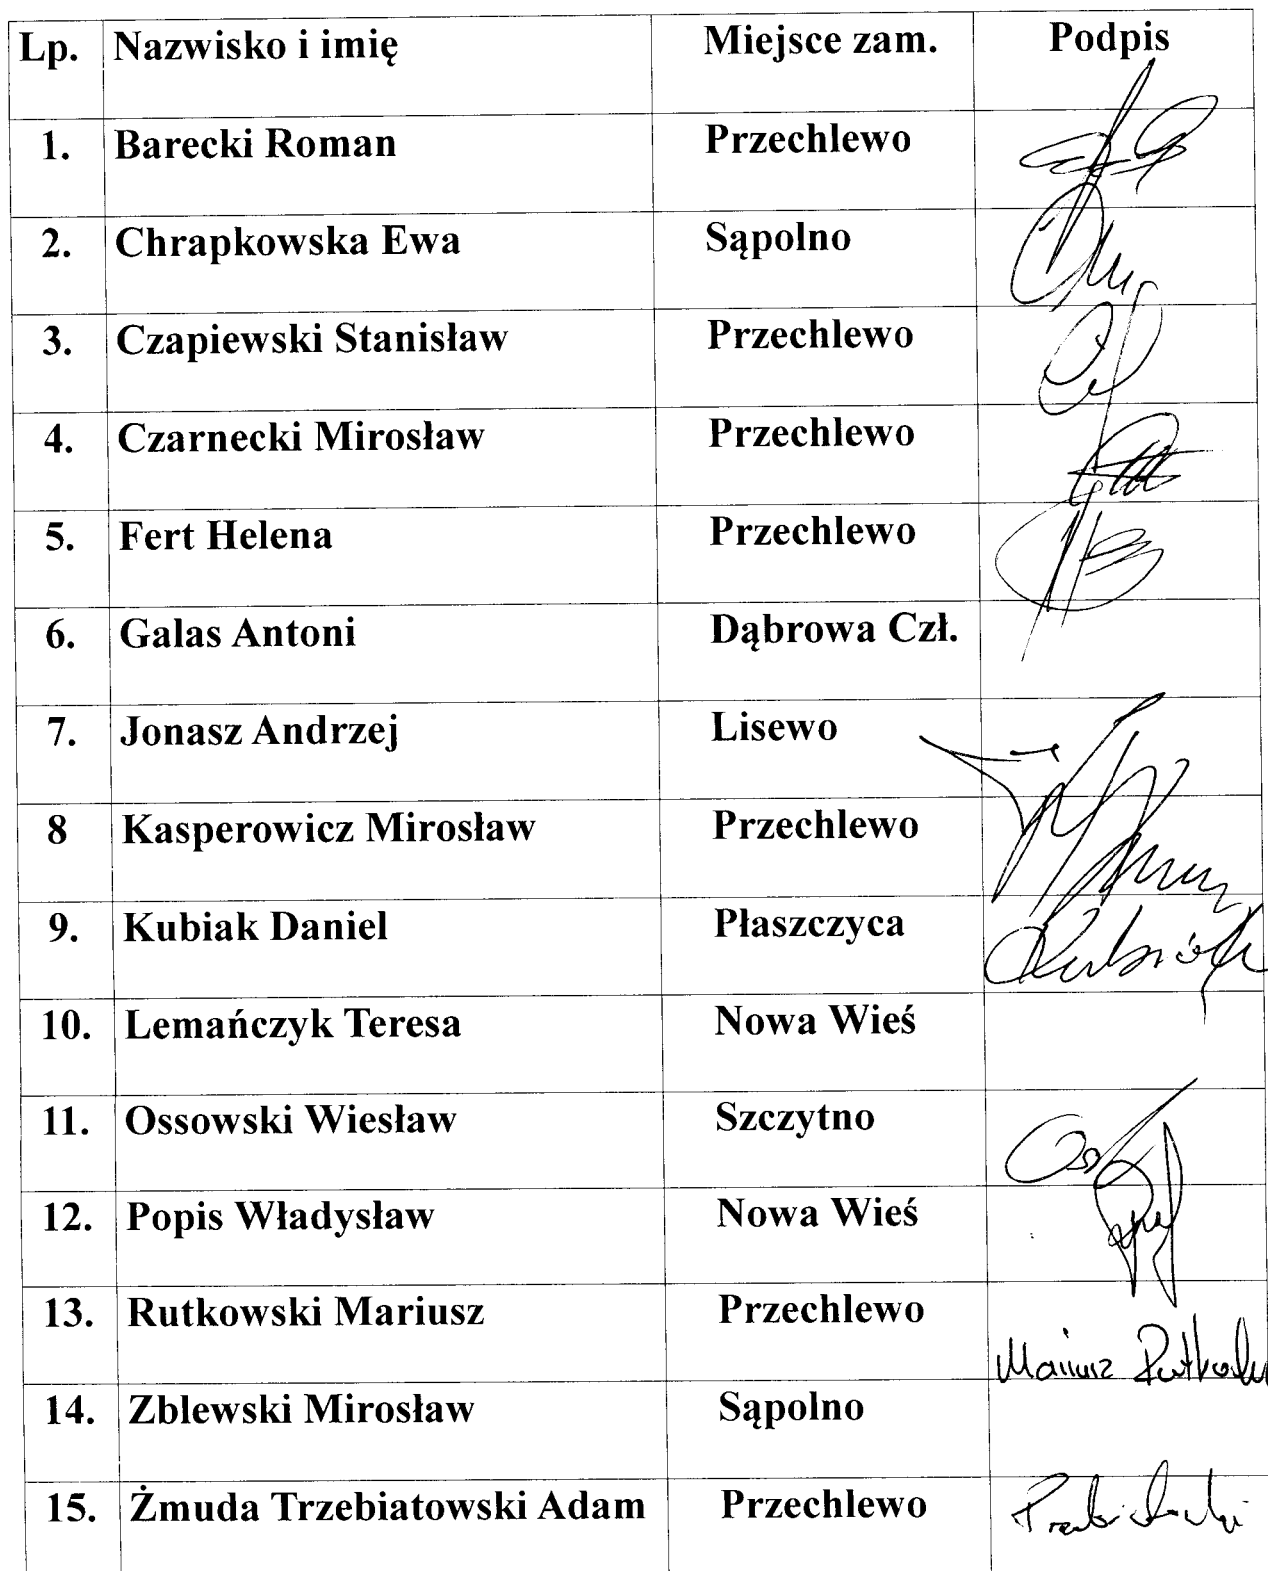 Lp. Nazwisko i imię Miejsce zam. Podpis
1. Barecki Roman Przechlewo
2. Chrapkowska Ewa Sąpolno
3. Czapiewski Stanisław Przechlewo
4. Czarnecki Mirosław Przechlewo
5. Fert Helena Przechlewo
6. Galas Antoni Dąbrowa Czł.
7. Jonasz Andrzej Lisewo
8 Kasperowicz Mirosław Przechlewo
9. Kubiak Daniel Płaszczyca Kubiak
10. Lemańczyk Teresa Nowa Wieś
11. Ossowski Wiesław Szczytno
12. Popis Władysław Nowa Wieś
13. Rutkowski Mariusz Przechlewo Mariusz Rutkowski
14. Zblewski Mirosław Sąpolno
15. Żmuda Trzebiatowski Adam Przechlewo